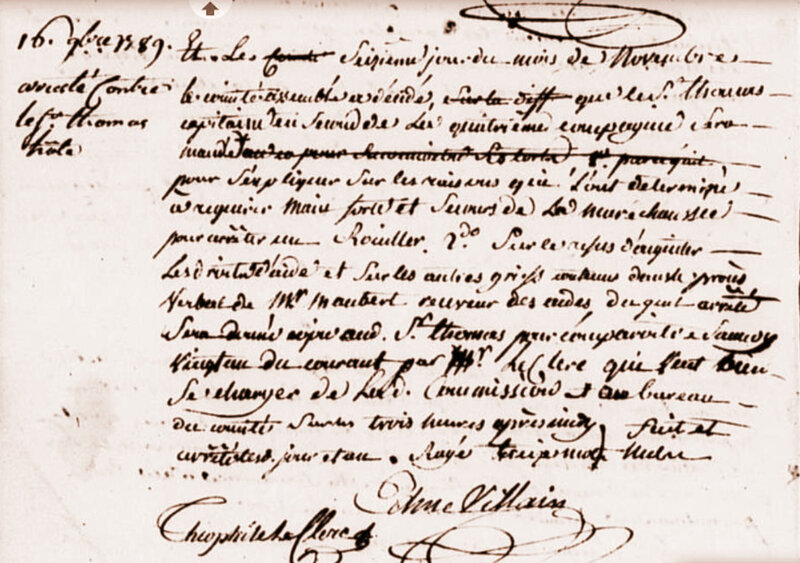 16. 9bre 1789.
arreté contre
le sr. thomas
Et. Les Comité Seizieme jour du mois de Novembre
le comité assemblé a décidé, sur la diff que le Sr. thomas
capitaine en Second de La quatrieme compagnie Sera
mandé
pour S'expliquer Sur les raisons qui L'ont determiné
a requerir Main forte et Secours de La marechaussée
pour arrêter un Rouiller. 2do. Sur le refus d'aquiter
Les droits d'aide et Sur les autres griefs contenus dans le procès
Verbal de Mr. Maubert receveur des aides du quel arrêté
Sera donné copie aud. Sr. thomas pour comparoitre Samedy
Vingt un du courant par Mr. Le Clerc qui Veut bien
Se charger de Lad. Commission et au bureau
du comité Sur les trois heures après midy fait et
arrêté lesd. jour et an. Rayé treize mots
Edme Villain
Theophile Le Clerc